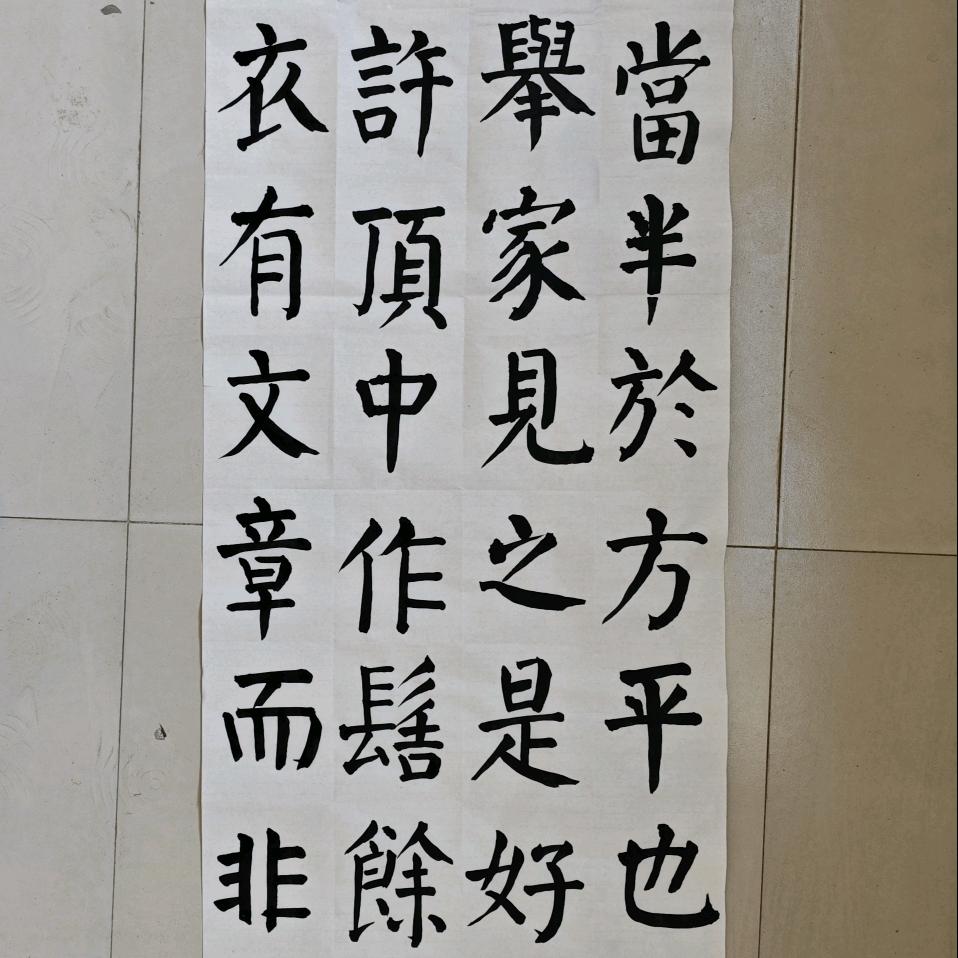 當半於方平也
舉家見之是好
許頂中作髻餘
衣有文章而非